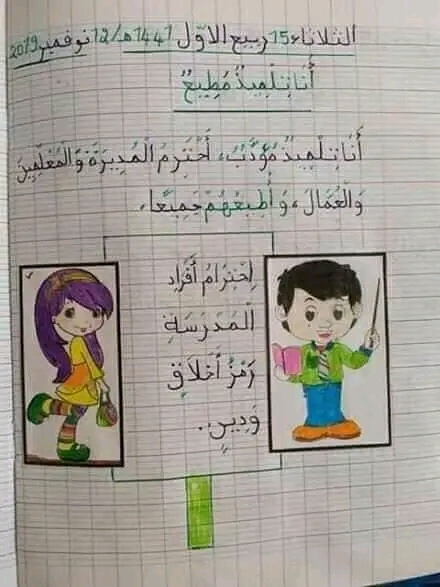 الثلاثاء 15 ربيع الاوّل 1441هـ/12 نوفمبر 2019
أَنَا تِلْمِيذٌ مُطِيعٌ
أَنَا تِلْمِيذٌ مُؤَدَّبٌ، أَحْتَرِمُ الْمُدِيرَةَ وَالمُعَلِّمِينَ
وَالعُمَّالَ، وَأُطِيعُهُمْ جَمِيعًا.
اِحْتِرَامُ أَفْرَادِ
الْمَدْرَسَةِ
رَمْزُ أَخْلَاقٍ
وَدِينٍ..